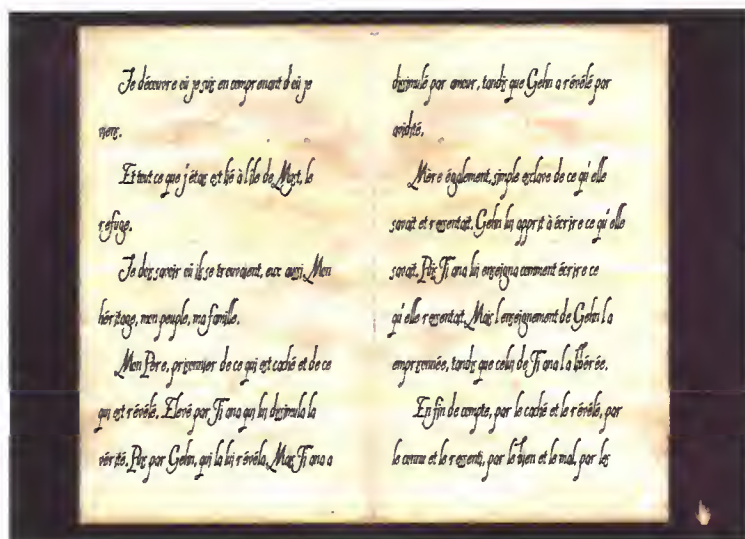 Je découvre où je suis en comprenant d'où je
viens.
Et tout ce que j'étais est lié à l'île de Myst, le
refuge.
Je dois savoir où ils se trouvaient, eux aussi. Mon
héritage, mon peuple, ma famille.
Mon Père, prisonnier de ce qui est caché et de ce
qui est révélé. Elevé par Ti'ana qui lui dissimula la
vérité. Puis par Gehn, qui la lui révéla. Mais Ti'ana a
dissimulé par amour, tandis que Gehn a révélé par
avidité.
Mère également, simple esclave de ce qu'elle
savait et ressentait. Gehn lui apprit à écrire ce qu'elle
savait. Puis Ti'ana lui enseigna comment écrire ce
qu'elle ressentait. Mais l'enseignement de Gehn l'a
emprisonnée, tandis que celui de Ti'ana l'a libérée.
En fin de compte, par le caché et le révélé, par
le connu et le ressenti, par le bien et le mal, par les